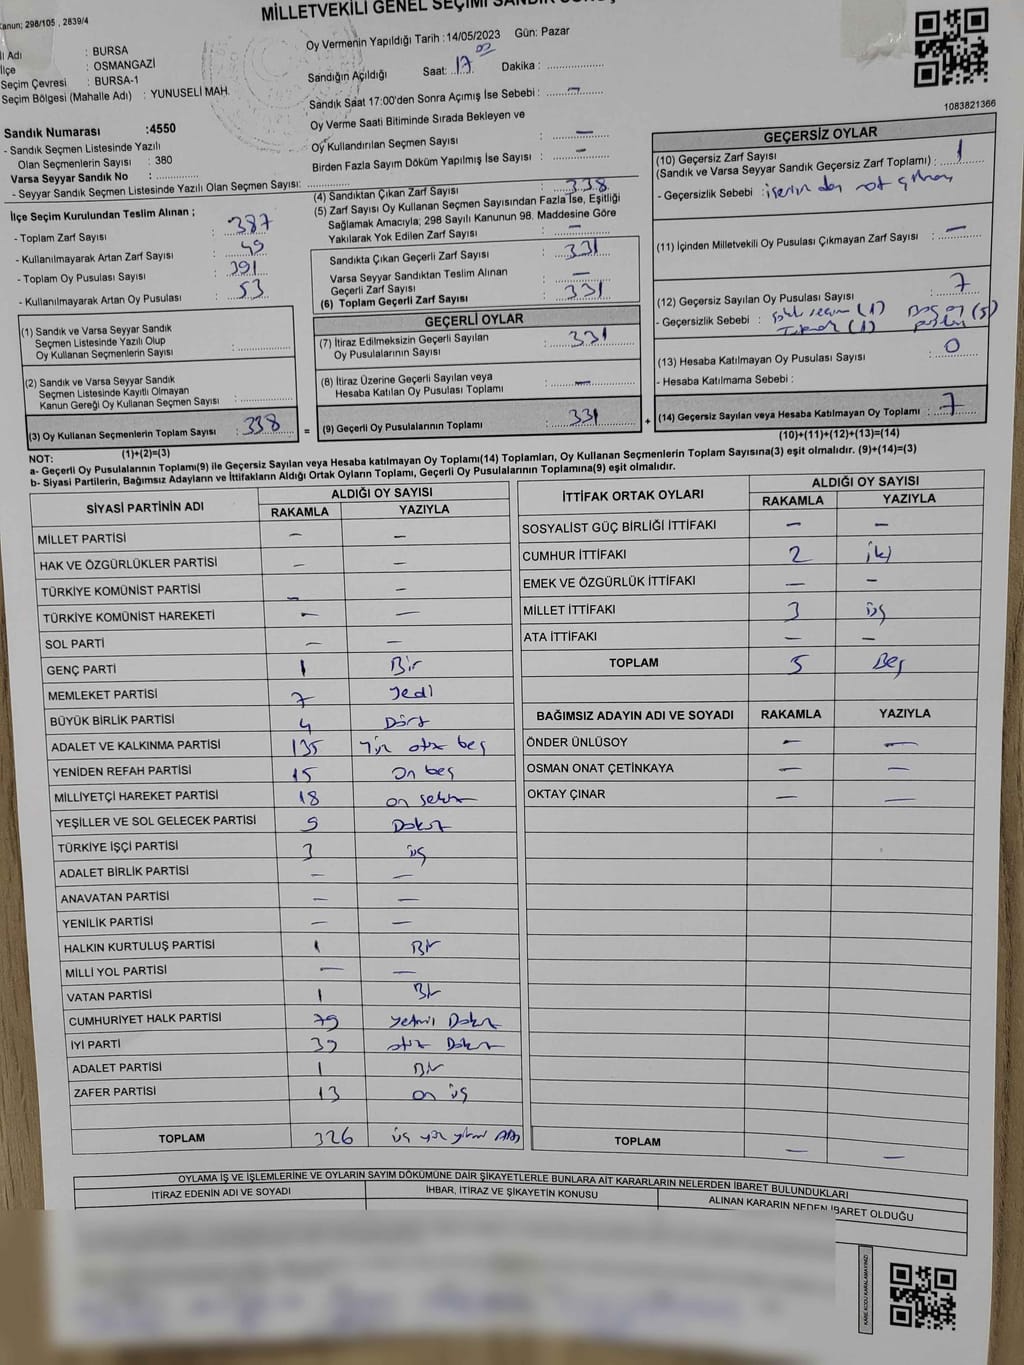 Kanun; 298/105 , 2839/4
MİLLETVEKİLİ GENEL SEÇİMİ SANDIK
İl Adı : BURSA
İlçe : OSMANGAZİ
Seçim Çevresi : BURSA-1
Seçim Bölgesi (Mahalle Adı) : YUNUSELİ MAH.
Oy Vermenin Yapıldığı Tarih :14/05/2023 Gün: Pazar
Sandığın Açıldığı Saat: 17 00 Dakika :
Sandık Saat 17:00'den Sonra Açımış İse Sebebi : —
Oy Verme Saati Bitiminde Sırada Bekleyen ve
Oy Kullandırılan Seçmen Sayısı : —
Birden Fazla Sayım Döküm Yapılmış İse Sayısı : —
1083821366
Sandık Numarası :4550
- Sandık Seçmen Listesinde Yazılı
Olan Seçmenlerin Sayısı : 380
Varsa Seyyar Sandık No :
- Seyyar Sandık Seçmen Listesinde Yazılı Olan Seçmen Sayısı:
İlçe Seçim Kurulundan Teslim Alınan ;
- Toplam Zarf Sayısı : 387
- Kullanılmayarak Artan Zarf Sayısı : 49
- Toplam Oy Pusulası Sayısı : 391
- Kullanılmayarak Artan Oy Pusulası : 53
(1) Sandık ve Varsa Seyyar Sandık
Seçmen Listesinde Yazılı Olup
Oy Kullanan Seçmenlerin Sayısı :
(2) Sandık ve Varsa Seyyar Sandık
Seçmen Listesinde Kayıtlı Olmayan
Kanun Gereği Oy Kullanan Seçmen Sayısı :
(3) Oy Kullanan Seçmenlerin Toplam Sayısı : 338
(1)+(2)=(3)
(4) Sandıktan Çıkan Zarf Sayısı : 338
(5) Zarf Sayısı Oy Kullanan Seçmen Sayısından Fazla İse, Eşitliği
Sağlamak Amacıyla; 298 Sayılı Kanunun 98. Maddesine Göre
Yakılarak Yok Edilen Zarf Sayısı : —
Sandıkta Çıkan Geçerli Zarf Sayısı : 331
Varsa Seyyar Sandıktan Teslim Alınan
Geçerli Zarf Sayısı : —
(6) Toplam Geçerli Zarf Sayısı : 331
GEÇERLİ OYLAR
(7) İtiraz Edilmeksizin Geçerli Sayılan
Oy Pusulalarının Sayısı : 331
(8) İtiraz Üzerine Geçerli Sayılan veya
Hesaba Katılan Oy Pusulası Toplamı : —
= (9) Geçerli Oy Pusulalarının Toplamı : 331
GEÇERSİZ OYLAR
(10) Geçersiz Zarf Sayısı
(Sandık ve Varsa Seyyar Sandık Geçersiz Zarf Toplamı) : 1
- Geçersizlik Sebebi :
(11) İçinden Milletvekili Oy Pusulası Çıkmayan Zarf Sayısı : —
(12) Geçersiz Sayılan Oy Pusulası Sayısı : 7
- Geçersizlik Sebebi : (1) (5)
(1)
(13) Hesaba Katılmayan Oy Pusulası Sayısı : 0
- Hesaba Katılmama Sebebi :
+ (14) Geçersiz Sayılan veya Hesaba Katılmayan Oy Toplamı : 7
(10)+(11)+(12)+(13)=(14)
NOT:
a- Geçerli Oy Pusulalarının Toplamı(9) ile Geçersiz Sayılan veya Hesaba katılmayan Oy Toplamı(14) Toplamları, Oy Kullanan Seçmenlerin Toplam Sayısına(3) eşit olmalıdır. (9)+(14)=(3)
b- Siyasi Partilerin, Bağımsız Adayların ve İttifakların Aldığı Ortak Oyların Toplamı, Geçerli Oy Pusulalarının Toplamına(9) eşit olmalıdır.
SİYASİ PARTİNİN ADI ALDIĞI OY SAYISI
RAKAMLA YAZIYLA
MİLLET PARTİSİ — —
HAK VE ÖZGÜRLÜKLER PARTİSİ — —
TÜRKİYE KOMÜNİST PARTİSİ — —
TÜRKİYE KOMÜNİST HAREKETİ — —
SOL PARTİ — —
GENÇ PARTİ 1 Bir
MEMLEKET PARTİSİ 7 Yedi
BÜYÜK BİRLİK PARTİSİ 4 Dört
ADALET VE KALKINMA PARTİSİ 135 Yüz otuz beş
YENİDEN REFAH PARTİSİ 15 On beş
MİLLİYETÇİ HAREKET PARTİSİ 18 on sekiz
YEŞİLLER VE SOL GELECEK PARTİSİ 9 Dokuz
TÜRKİYE İŞÇİ PARTİSİ 3 üç
ADALET BİRLİK PARTİSİ — —
ANAVATAN PARTİSİ — —
YENİLİK PARTİSİ — —
HALKIN KURTULUŞ PARTİSİ 1 Bir
MİLLİ YOL PARTİSİ — —
VATAN PARTİSİ 1 Bir
CUMHURİYET HALK PARTİSİ 79 yetmiş Dokuz
İYİ PARTİ 39 otuz Dokuz
ADALET PARTİSİ 1 Bir
ZAFER PARTİSİ 13 on üç
TOPLAM 326 üç yüz yirmi Altı
İTTİFAK ORTAK OYLARI ALDIĞI OY SAYISI
RAKAMLA YAZIYLA
SOSYALİST GÜÇ BİRLİĞİ İTTİFAKI — —
CUMHUR İTTİFAKI 2 iki
EMEK VE ÖZGÜRLÜK İTTİFAKI — —
MİLLET İTTİFAKI 3 üç
ATA İTTİFAKI — —
TOPLAM 5 Beş
BAĞIMSIZ ADAYIN ADI VE SOYADI RAKAMLA YAZIYLA
ÖNDER ÜNLÜSOY — —
OSMAN ONAT ÇETİNKAYA — —
OKTAY ÇINAR — —
TOPLAM — —
OYLAMA İŞ VE İŞLEMLERİNE VE OYLARIN SAYIM DÖKÜMÜNE DAİR ŞİKAYETLERLE BUNLARA AİT KARARLARIN NELERDEN İBARET BULUNDUKLARI
İTİRAZ EDENİN ADI VE SOYADI İHBAR, İTİRAZ VE ŞİKAYETİN KONUSU ALINAN KARARIN NEDEN İBARET OLDUĞU
KARE KODU KARALAMAYINIZ!